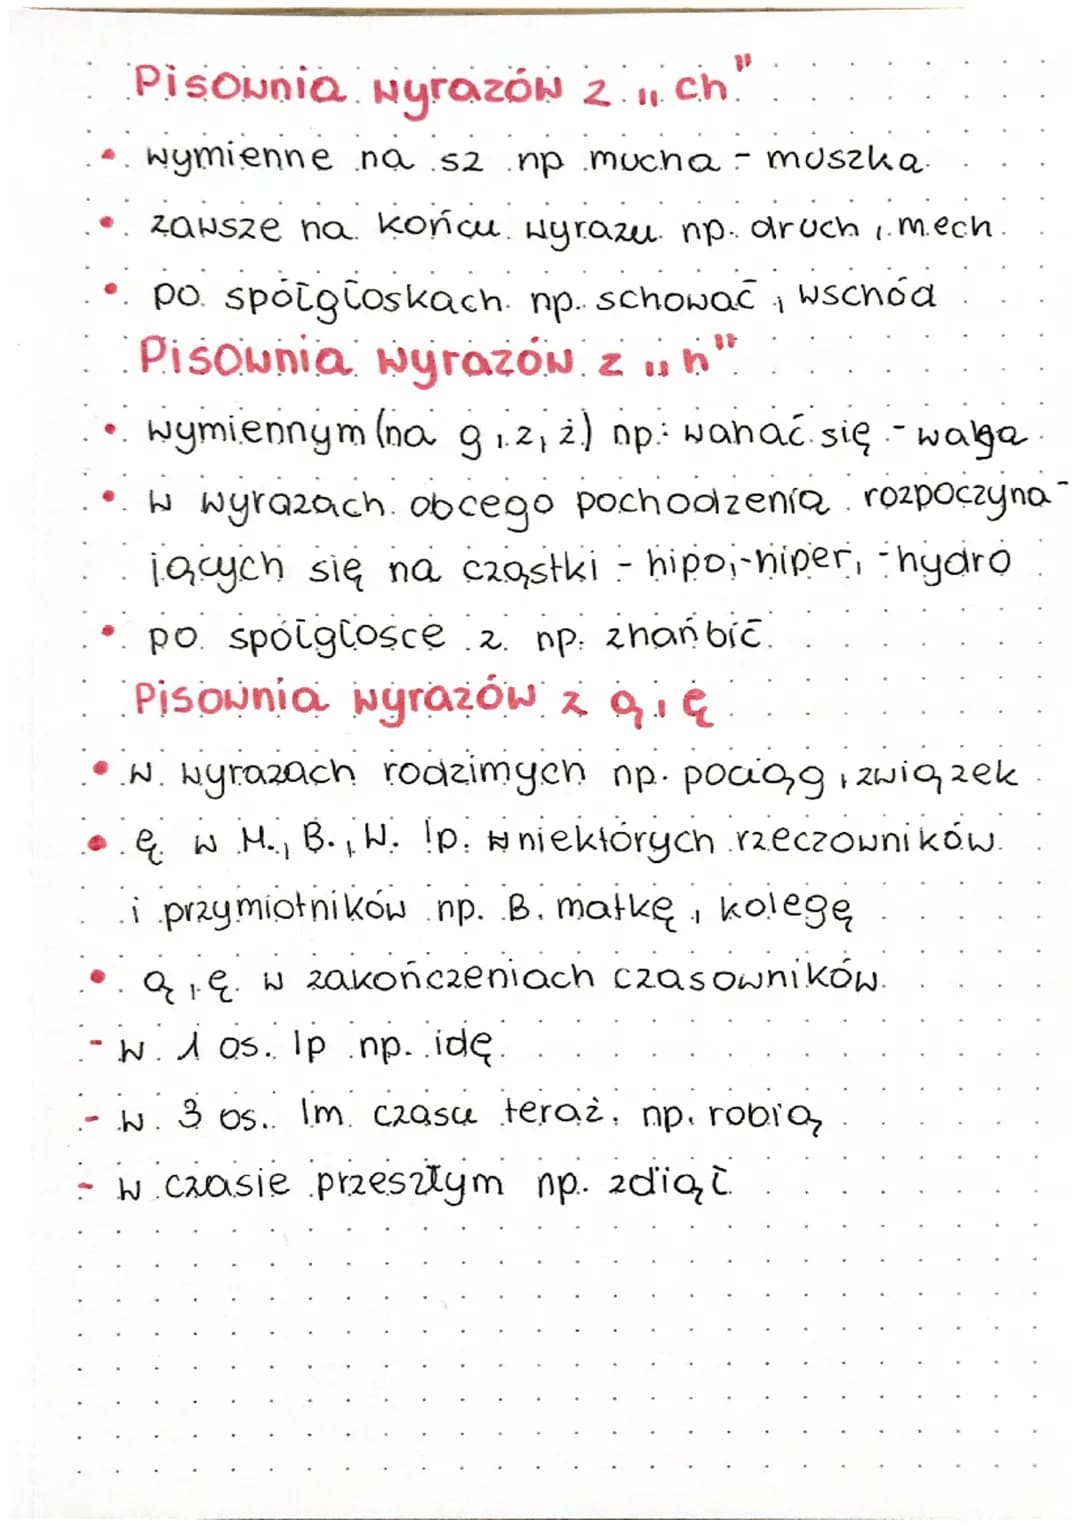 Pisownia wyrazów z „ch"
• wymienne na sz np mucha - muszka
• zawsze na końcu wyrazu np. druch, mech
• po spółgłoskach np. schować, wschód
Pisownia wyrazów z „h"
• wymiennym (na g, z, ż) np: wahać się - waga
• w wyrazach obcego pochodzenia rozpoczyna-
jących się na cząstki - hipo,-hiper, -hydro
• po spółgłosce z np: zhańbić
Pisownia wyrazów z ą, ę
• w wyrazach rodzimych np. pociąg, związek
• ę w M., B., W. lp. niektórych rzeczowników
i przymiotników np. B. matkę, kolegę
• ą, ę w zakończeniach czasowników
- w 1 os. lp np. idę
- w 3 os. lm czasu teraź. np. robią
- w czasie przeszłym np. zdjął